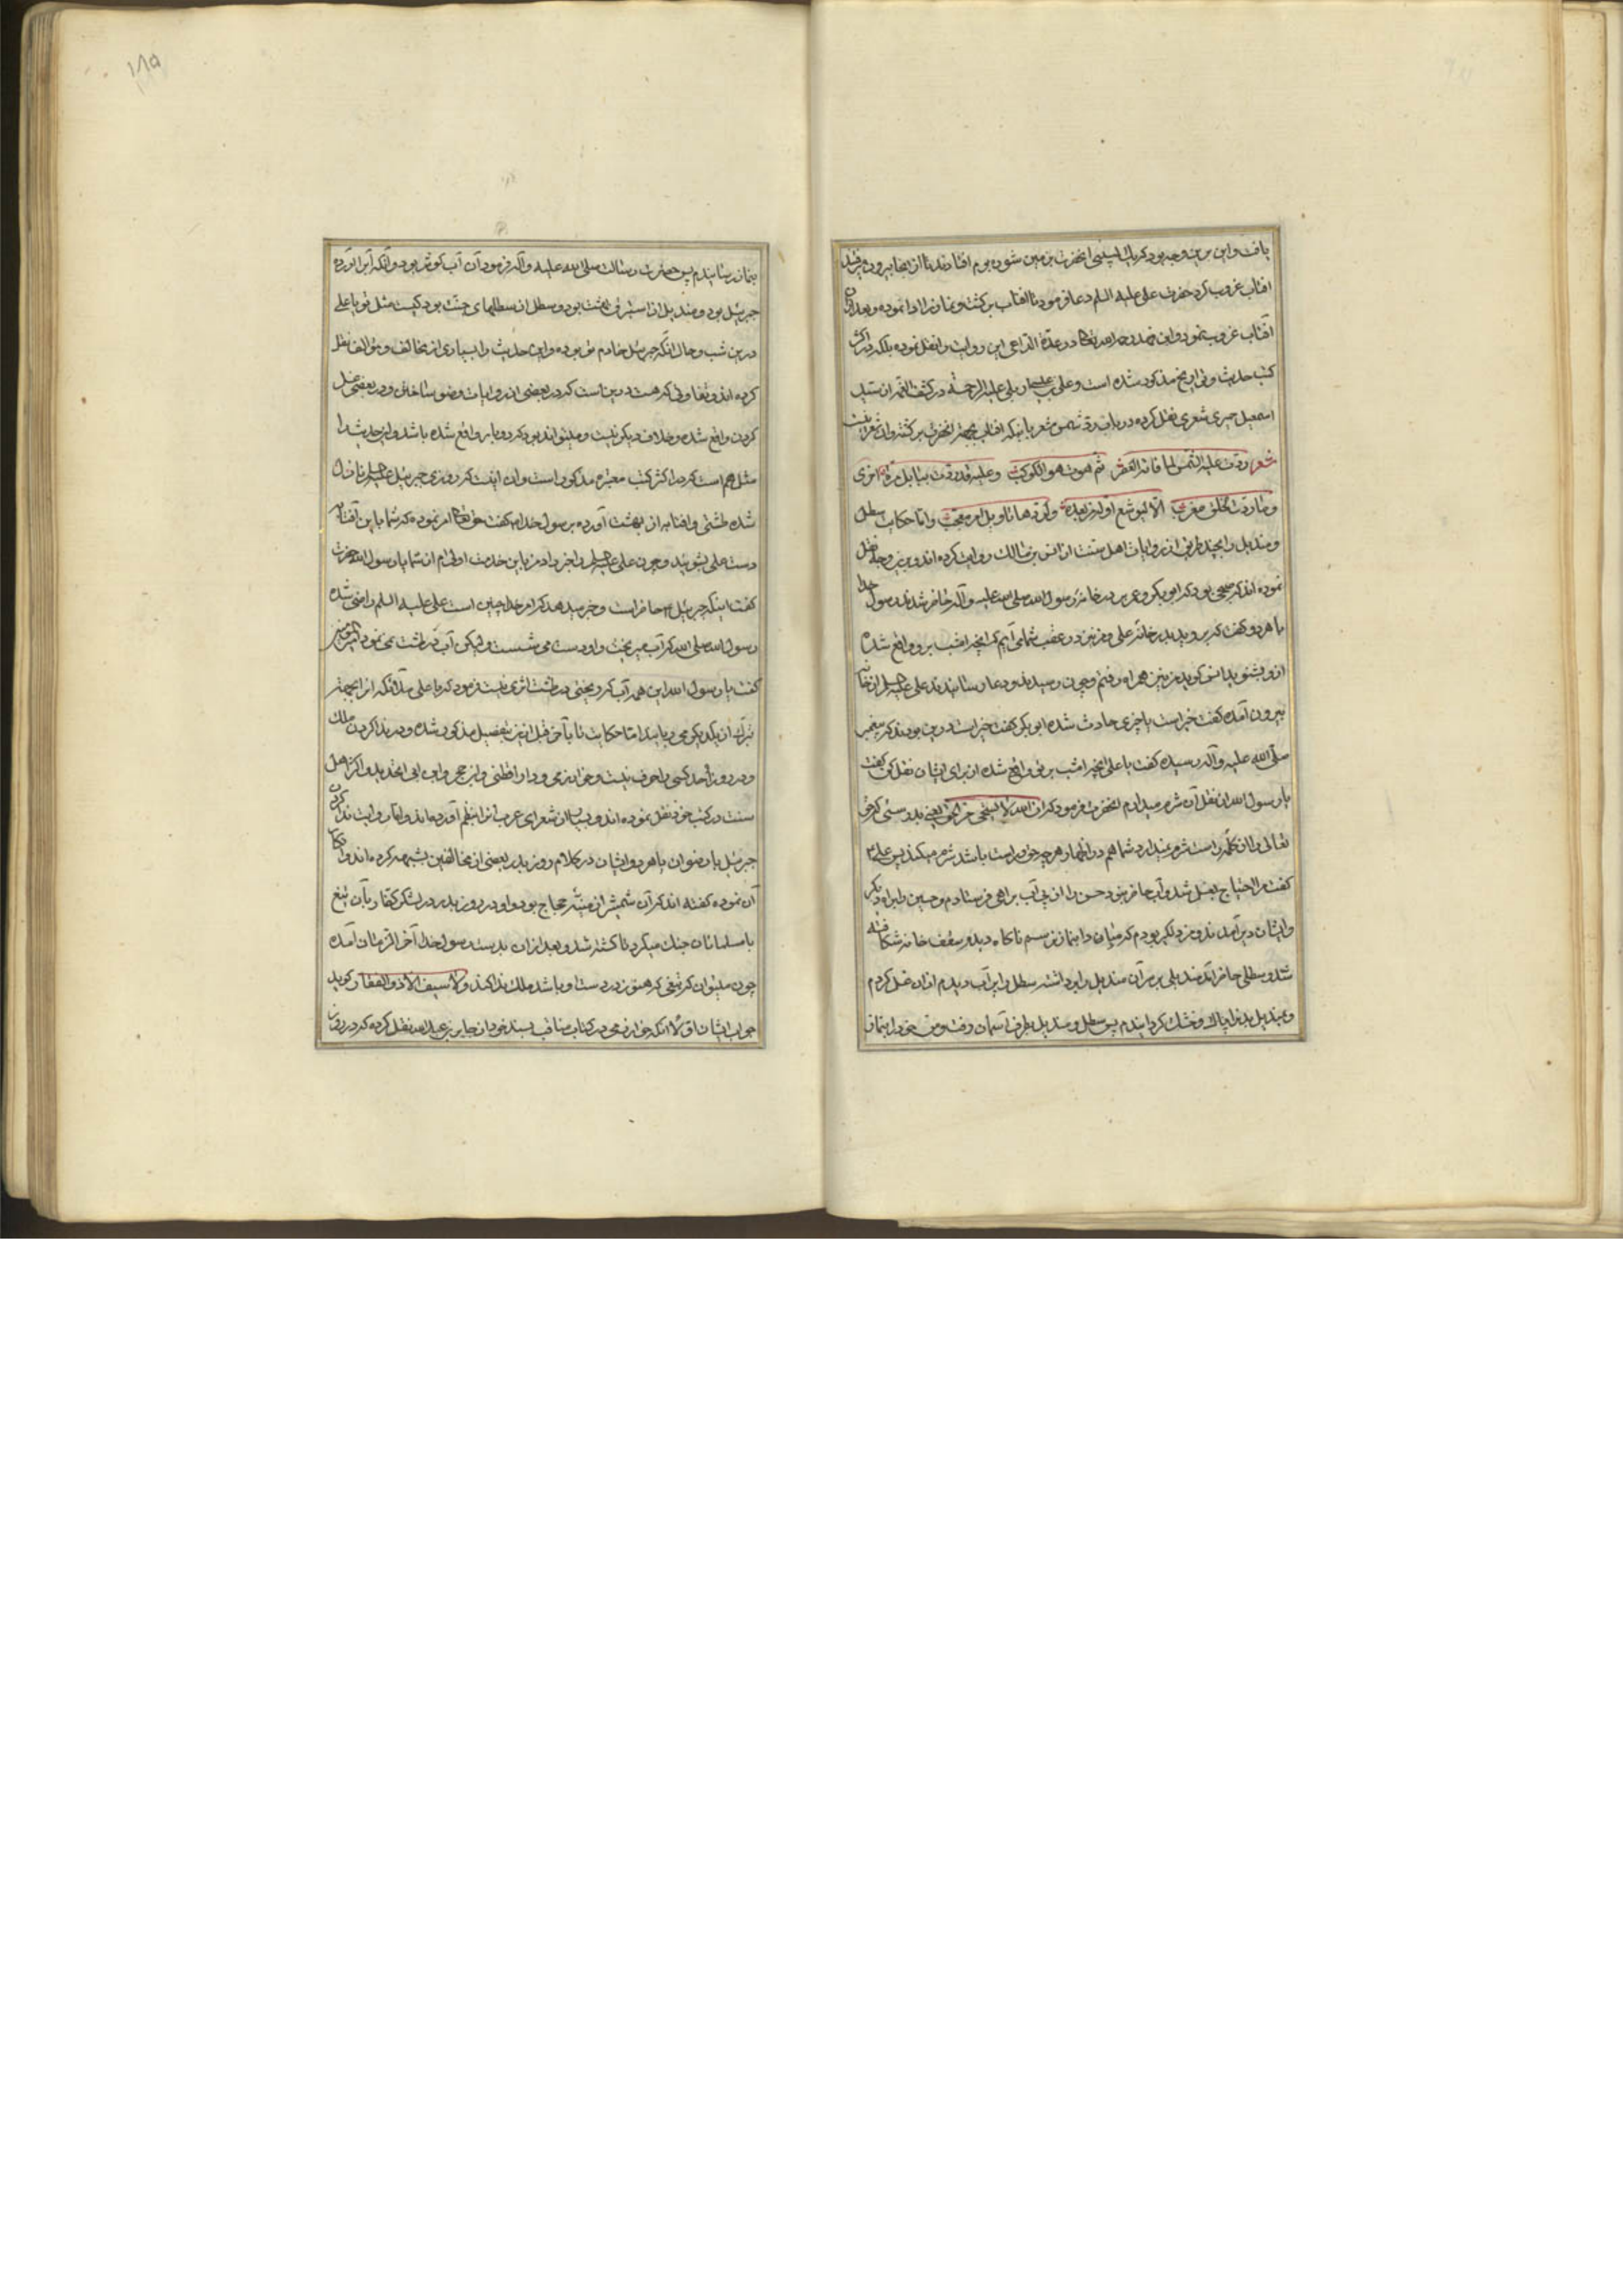 یافت و این برین وجه بود که زمین شوره بوم افتادند تا از آنجا بیرون می‌رفتند
افتاب غروب کرد حضرت علی علیه السلم دعا فرمود تا افتاب برکشت و نماز را ادا نموده و بعد ازان
افتاب غروب نمود و ابن فهد رحمه الله تعالی در عدة الداعی این روایت را نقل نموده بلکه در اکثر
کتب حدیث و تواریخ مذکور شده است و علی بن عیسی اربلی علیه الرحمه در کشف الغمه از سید
اسمعیل حمیری شعری نقل کرده در باب ردّ شمس مشعر باینکه افتاب بجهة انحضرت برکشته و ان شعر اینست
شعر ردّت علیه الشمس لما فاته العصر ثم هوت هوی الکوکب وعلیه قد ردّت ببابل مرة اخری
وما ردّت لخلق مغرب الا لیوشع او له من بعده ولردها تاویل امر معجب و اما حکایت سطل
و مندیل را بچند طریق از روایات اهل سنت از انس بن مالک روایت کرده اند و برین وجه نقل
نموده اند که صبحی بود که ابو بکر و عمر بر در خانه رسول الله صلی الله علیه و آله حاضر شدند رسول خدا
با هر دو کفت که بروید بدر خانه علی و من نیز در عقب شما می آیم که آنچه امشب برو واقع شده
ازو بشنوید انس کوید من نیز همراه رفتم و چون رسیدند و دعا رسانیدند علی علیه السلم از خانه
بیرون آمده کفت خیر است یا چیزی حادث شده ابو بکر کفت خیر است درین بودند که پیغمبر
صلّی الله علیه و آله رسیده کفت یا علی آنچه امشب بر تو واقع شده از برای ایشان نقل کن کفت
یا رسول الله از نقل آن شرم میدارم انحضرت فرمود که ان الله لا یستحیی من الحق یعنی بدرستی که حق
تعالی را از کلمه راست شرم نمیدارد شما هم در اظهار هر چه حق و راست باشد شرم میکنید پس علی
کفت مرا احتیاج بغسل شد و آب حاضر نبود حسن را از پی آب براهی فرستادم و حسین را براه دیکر
و ایشان دیر آمدند و من دلکیر بودم که مبادا بنماز نرسم ناکاه دیدم سقف خانه شکافته
شد و سطلی حاضر آمد مندیلی بر سر آن مندیل را برداشته سطل را پر آب دیدم ازان غسل کردم
و بمندیل بدن را پاک و خشک کردانیدم پس سطل و مندیل بطرف آسمان رفت و من خود را بنماز
۱۸۵
بنماز رسانیدم پس حضرت رسالت صلی الله علیه و آله فرمود آن آب کوثر بود و آنکه آب آورده
جبرئیل بود و مندیل از استبرق بهشت بود و سطل از سطلهای جنت بود کیست مثل تو یا علی
درین شب و حال انکه جبرئیل خادم تو بوده و این حدیث را بسیاری از مخالف و مؤالف نقل
کرده اند و تفاوتی که هست درین است که در بعضی از روایات وضو ساختن و در بعضی غسل
کردن واقع شده و خلاف دیکر نیست و میتواند بود که دو بار واقع شده باشد و این حدیث را
مثل هم است که در اکثر کتب معتبره مذکور است و ان اینست که روزی جبرئیل علیه السلم نازل
شده طشتی و افتابه از بهشت آورده برسول خدا کفت حق تعالی امر نموده که شما باین آفتابه
دست علی بشویید و چون علی علیه السلم را خبر داد من باین خدمت اولی ام از شما یا رسول الله حضرت
کفت اینک جبرئیل حاضر است و خبر میدهد که امر خدا چنین است علی علیه السلم راضی شده
رسول الله صلی الله که آب میریخت و او دست می شست و لیکن آب در طشت نمی نمود امیر المؤمنین
کفت یا رسول الله این همه آب که ریختی در طشت اثری نیست فرمود که یا علی ملائکه از برای
تبرک از یکدیکر می ربایند اما حکایت تا بآخر قبل ازین بتفصیل مذکور شده و در ندا کردن ملک
در روز احد کسی را حرف نیست و خوارزمی و دارقطنی و ابن حجر و ابن ابی الحدید و اکثر اهل
سنت در کتب خود نقل نموده اند و بسیار از شعرای عرب انرا بنظم آورده اند و اما روایت ندا کردن
جبرئیل یا رضوان یا هر دو ایشان در کلام روز بدر بعضی از مخالفین شبهه کرده اند و انکار
آن نموده کفته اند که آن شمشیر از منبه حجاج بود و او در روز بدر در لشکر کفار بآن تیغ
با مسلمانان جنک میکرد تا کشته شد و بعد ازان بدست رسول خدا آخر الزمان آمده
چون میتوان که تیغی که هنوز در دست او باشد ملک ندا کند و لا سیف الا ذو الفقار کوید
جواب ایشان اولا انکه خوارزمی در کتاب مناقب بسند خود از جابر بن عبد الله نقل کرده که در روز